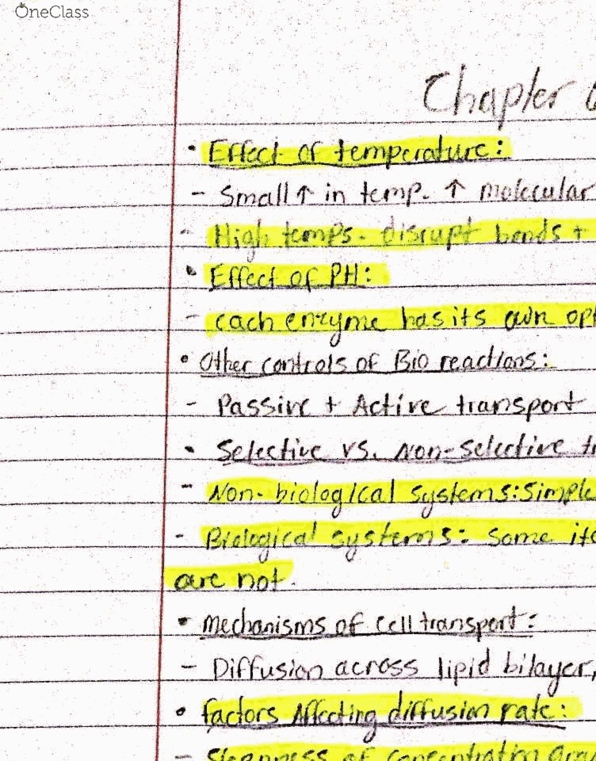 OneClass
Chapter
• Effect of temperature:
- Small ↑ in temp. ↑ molecular
- High temps. disrupt bonds +
• Effect of PH:
- each enzyme has its own opt
• Other controls of Bio reactions:
- Passive + Active transport
• Selective vs. non-selective tr
- Non-biological systems: simple
- Biological systems: Some ite
are not.
• Mechanisms of cell transport:
- Diffusion across lipid bilayer,
• factors Affecting diffusion rate:
- Steepness of concentration gra